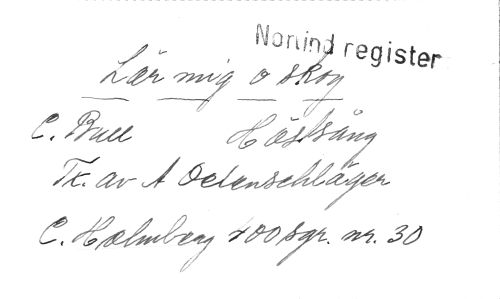 Nonind register
Lär mig o skog
C. Bull Höstsång
Tx. av A Oelenschläger
C. Holmberg 100 sgr. nr. 30